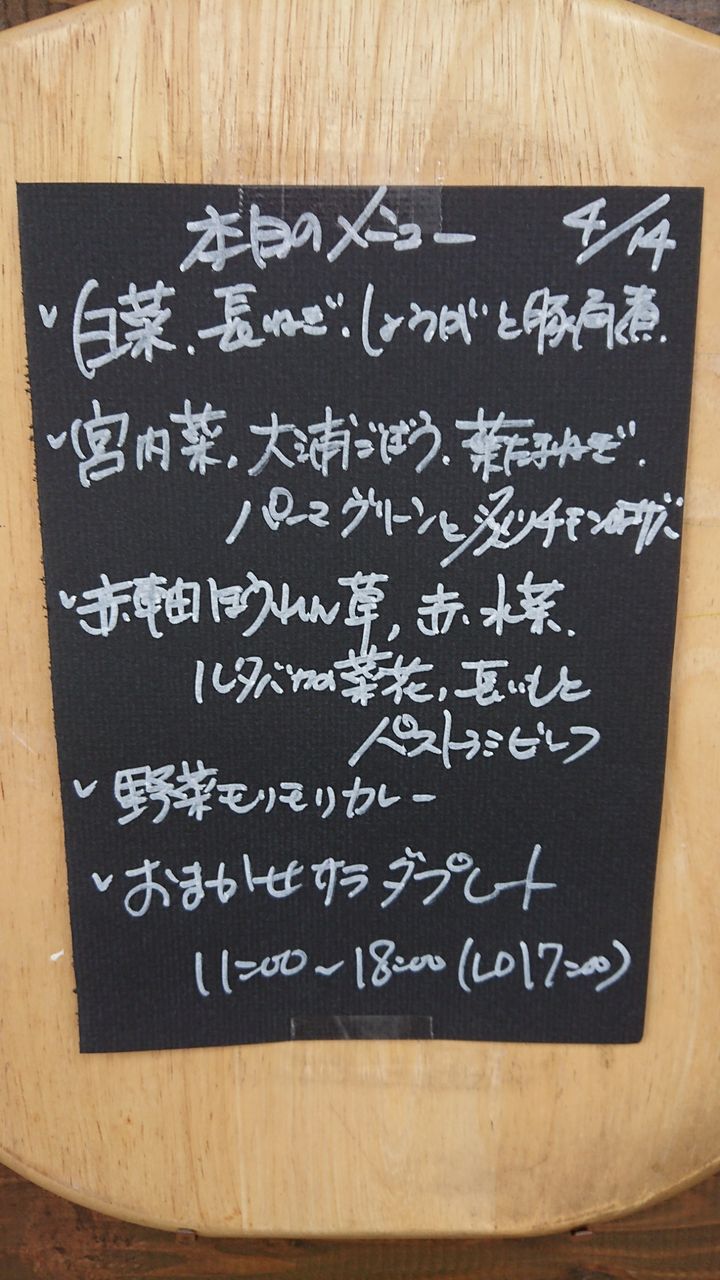 本日のメニュー 4/14
✓白菜、長ねぎ、しょうがと豚角煮
✓宮内菜、大浦ごぼう、葉たまねぎ、
パーマグリーンと炙りチキン
✓赤軸ほうれん草、赤水菜、
ルタバガの菜花、長いもと
パストラミビーフ
✓野菜モリモリカレー
✓おまかせサラダプレート
11:00~18:00(LO17:00)